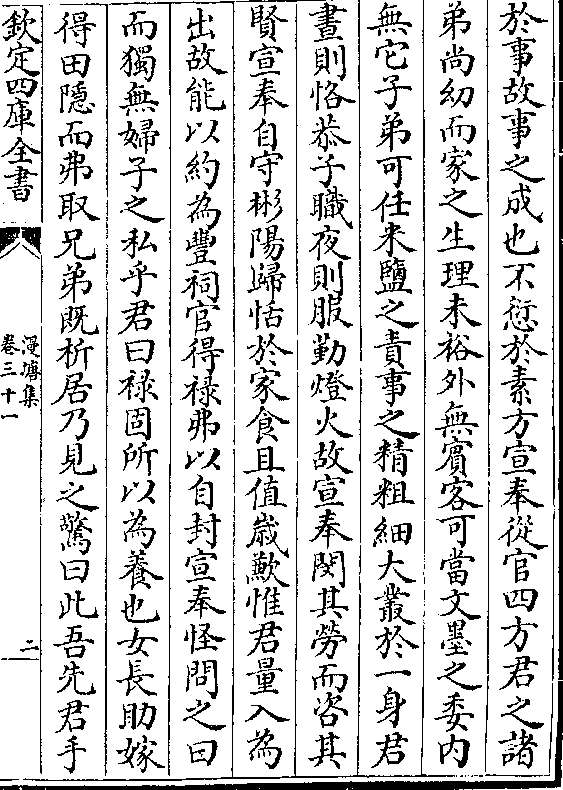 於事故事之成也不愆於素方宣奉從官四方君之諸
弟尚幼而家之生理未裕外無賓客可當文墨之委内
無它子弟可任米鹽之責事之精粗細大叢於一身君
晝則恪恭子職夜則服勤燈火故宣奉閔其勞而咨其
賢宣奉自守彬陽歸恬於家食且值歲歉惟君量入為
出故能以約為豐祠官得禄弗以自封宣奉怪問之曰
而獨無婦子之私乎君曰禄固所以為養也女長助嫁
得田隱而弗取兄弟既析居乃見之驚曰此吾先君手
欽定四庫全書
漫塘集
卷三十一
二